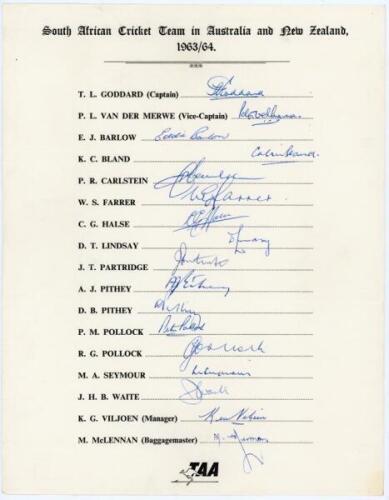 South African Cricket Team in Australia and New Zealand,
1963/64.
T. L. GODDARD (Captain) T Goddard
P. L. VAN DER MERWE (Vice-Captain)
E. J. BARLOW Eddie Barlow
K. C. BLAND Colin Bland
P. R. CARLSTEIN
W. S. FARRER W S Farrer
C. G. HALSE
D. T. LINDSAY
J. T. PARTRIDGE
A. J. PITHEY A J Pithey
D. B. PITHEY
P. M. POLLOCK Peter Pollock
R. G. POLLOCK
M. A. SEYMOUR
J. H. B. WAITE
K. G. VILJOEN (Manager) Ken Viljoen
M. McLENNAN (Baggagemaster)
TAA